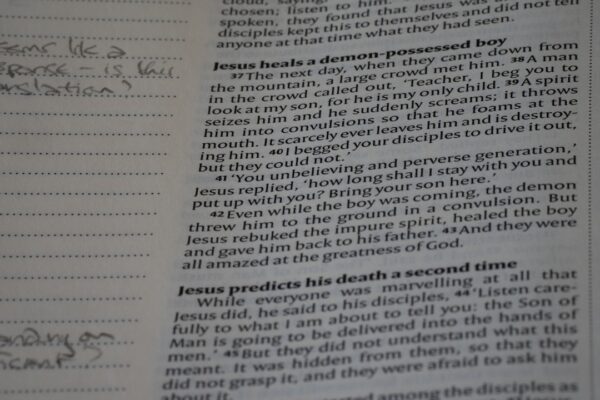 cloud, saying,
chosen; listen to him.'
spoken, they found that Jesus was
disciples kept this to themselves and did not tell
anyone at that time what they had seen.
Jesus heals a demon-possessed boy
37 The next day, when they came down from
the mountain, a large crowd met him. 38 A man
in the crowd called out, 'Teacher, I beg you to
look at my son, for he is my only child. 39 A spirit
seizes him and he suddenly screams; it throws
him into convulsions so that he foams at the
mouth. It scarcely ever leaves him and is destroy-
ing him. 40 I begged your disciples to drive it out,
but they could not.'
41 'You unbelieving and perverse generation,'
Jesus replied, 'how long shall I stay with you and
put up with you? Bring your son here.'
42 Even while the boy was coming, the demon
threw him to the ground in a convulsion. But
Jesus rebuked the impure spirit, healed the boy
and gave him back to his father. 43 And they were
all amazed at the greatness of God.
Jesus predicts his death a second time
While everyone was marvelling at all that
Jesus did, he said to his disciples, 44 'Listen care-
fully to what I am about to tell you: the Son of
Man is going to be delivered into the hands of
men.' 45 But they did not understand what this
meant. It was hidden from them, so that they
did not grasp it, and they were afraid to ask him
about it.
among the disciples as
like a
is this